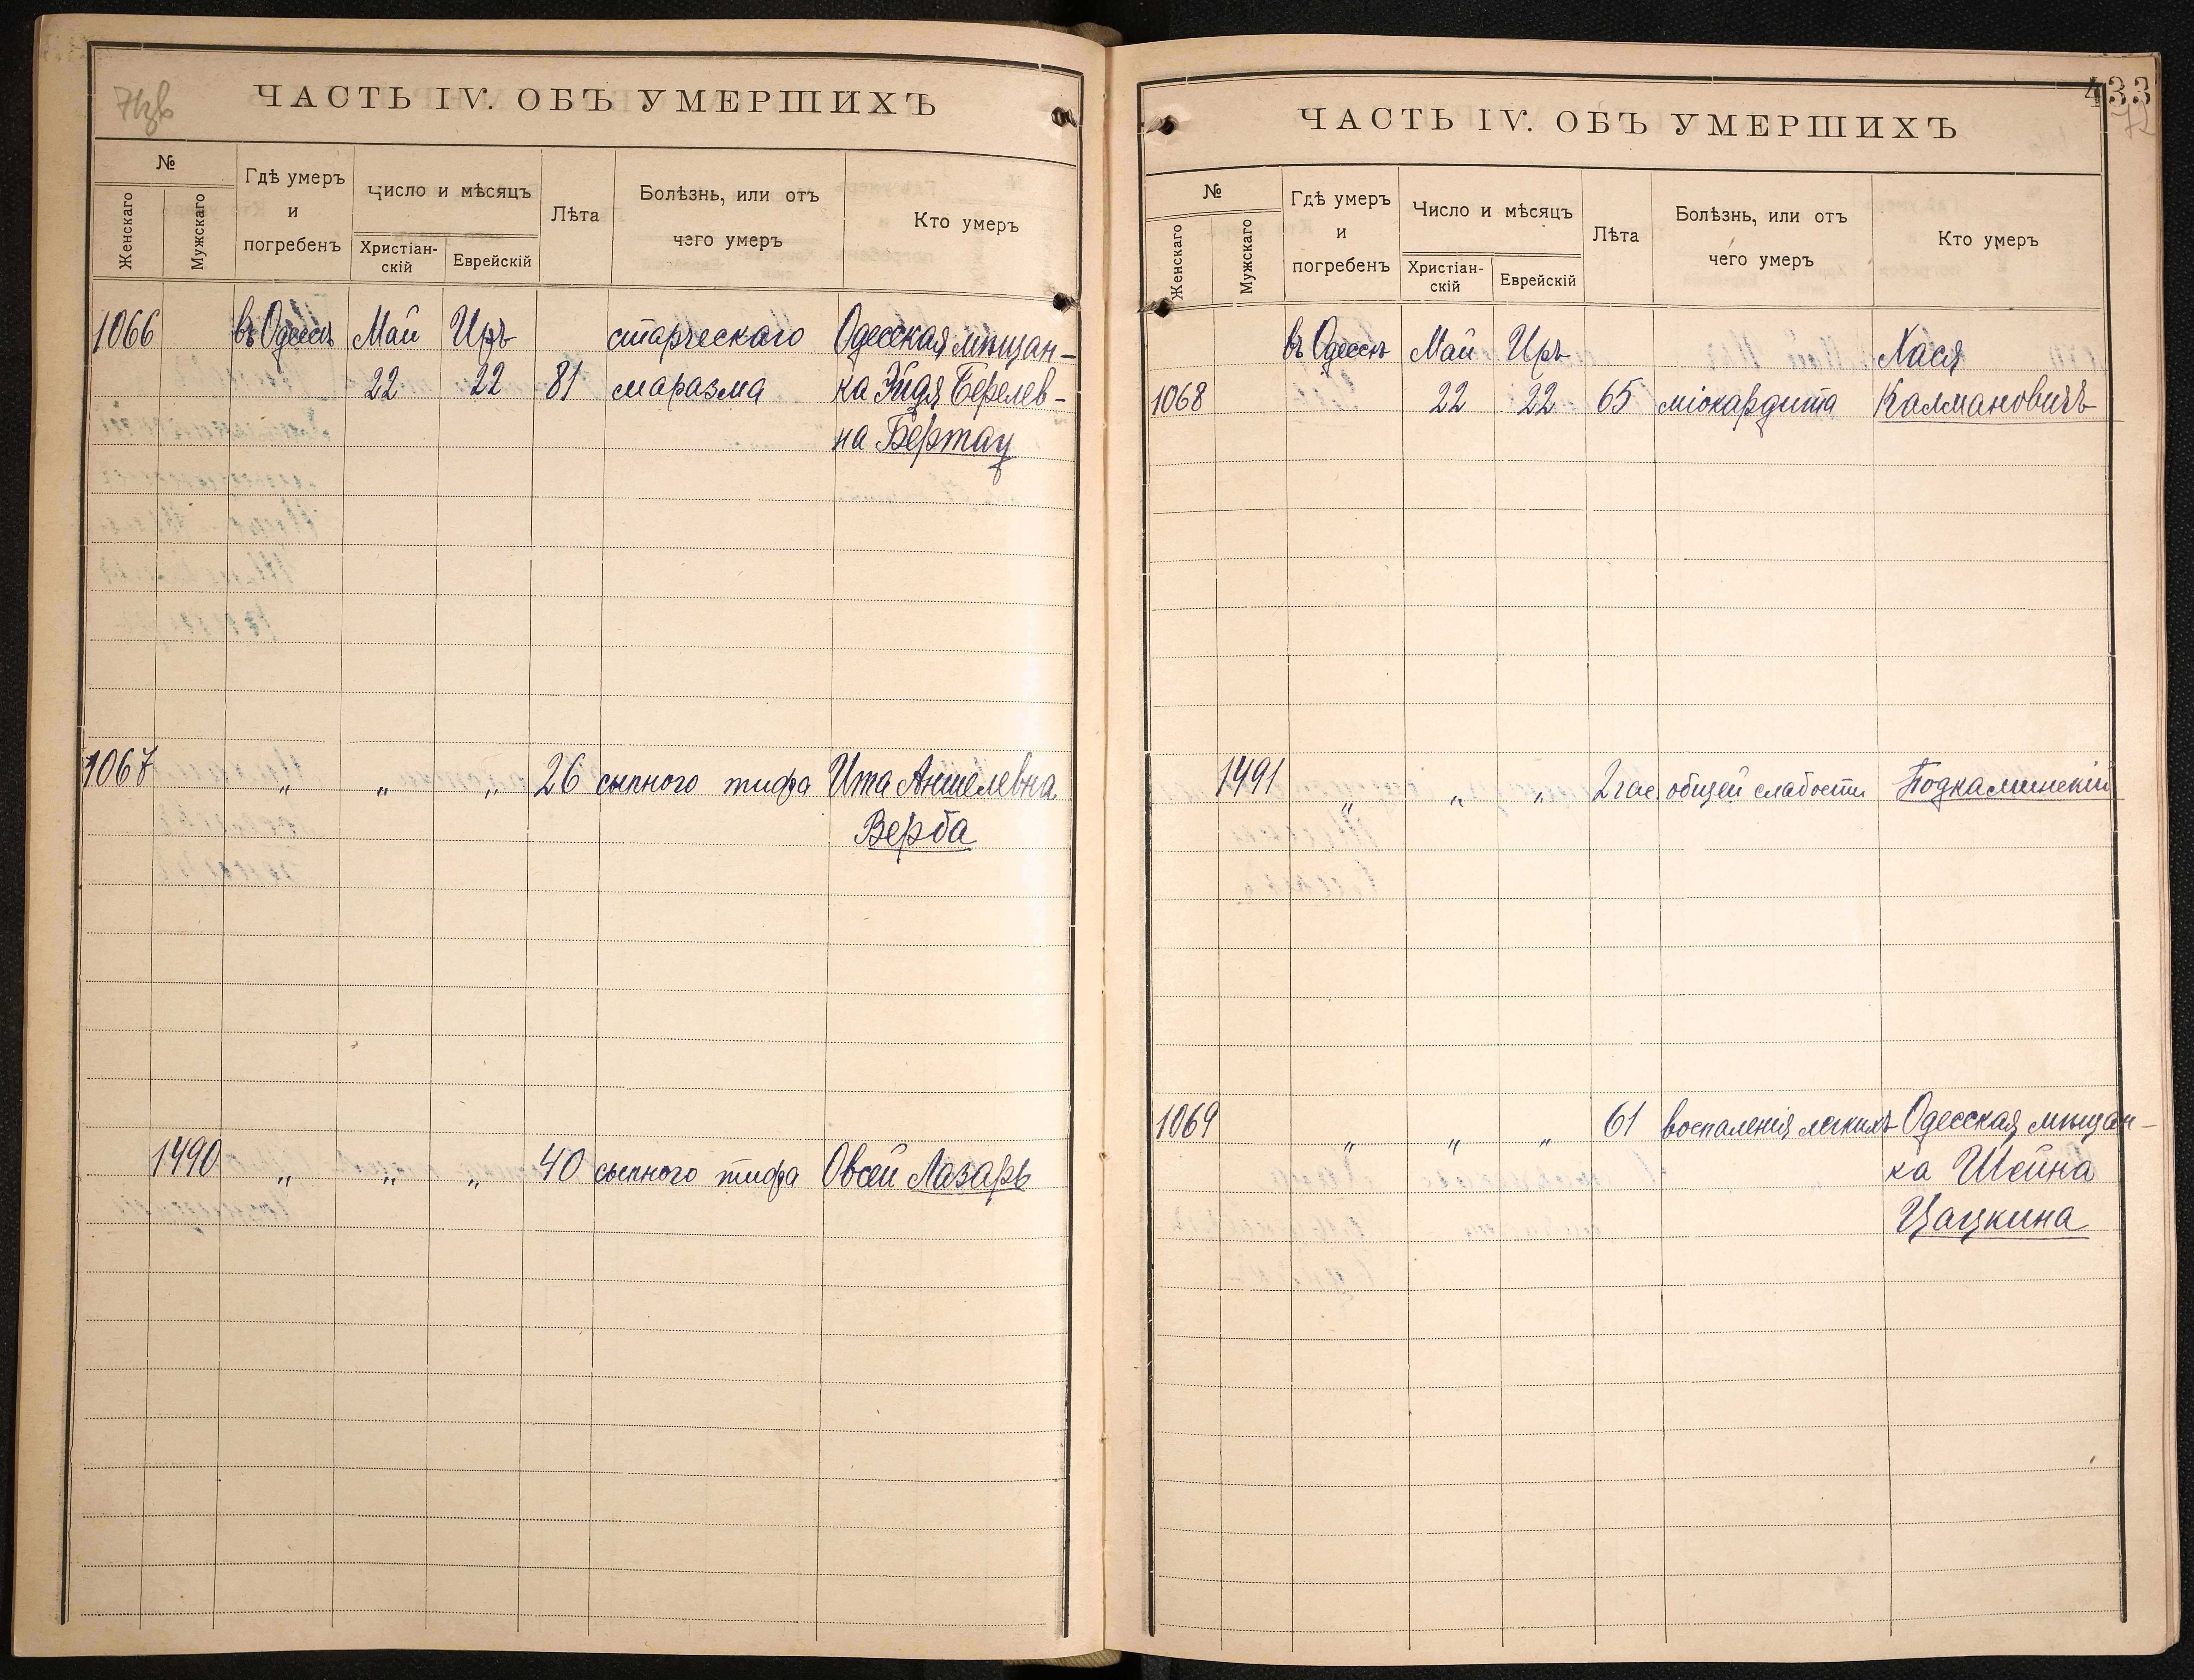 71об
ЧАСТЬ IV. ОБЪ УМЕРШИХЪ
№
Женскаго
Мужскаго
Гдѣ умеръ
и
погребенъ
Число и мѣсяцъ
Христіан-
скій
Еврейскій
Лѣта
Болѣзнь, или отъ
чего умеръ
Кто умеръ
1066 въ Одессѣ Май Иръ старческаго Одесская мѣщан-
22 22 81 маразма ка Эйдя Берелев-
на Бертац
1067 „ „ „ 26 сыпного тифа Ита Аншелевна
Верба
1490 „ „ „ 40 сыпного тифа Овсей Лазарь
433
72
ЧАСТЬ IV. ОБЪ УМЕРШИХЪ
№
Женскаго
Мужскаго
Гдѣ умеръ
и
погребенъ
Число и мѣсяцъ
Христіан-
скій
Еврейскій
Лѣта
Болѣзнь, или отъ
чего умеръ
Кто умеръ
въ Одессѣ Май Иръ Хася
1068 22 22 65 міокардита Калмановичъ
1491 „ „ „ 2 час. общей слабости Подкаминскій
1069 „ „ „ 61 воспаленія легкихъ Одесская мѣщан-
ка Шейна
Цацкина